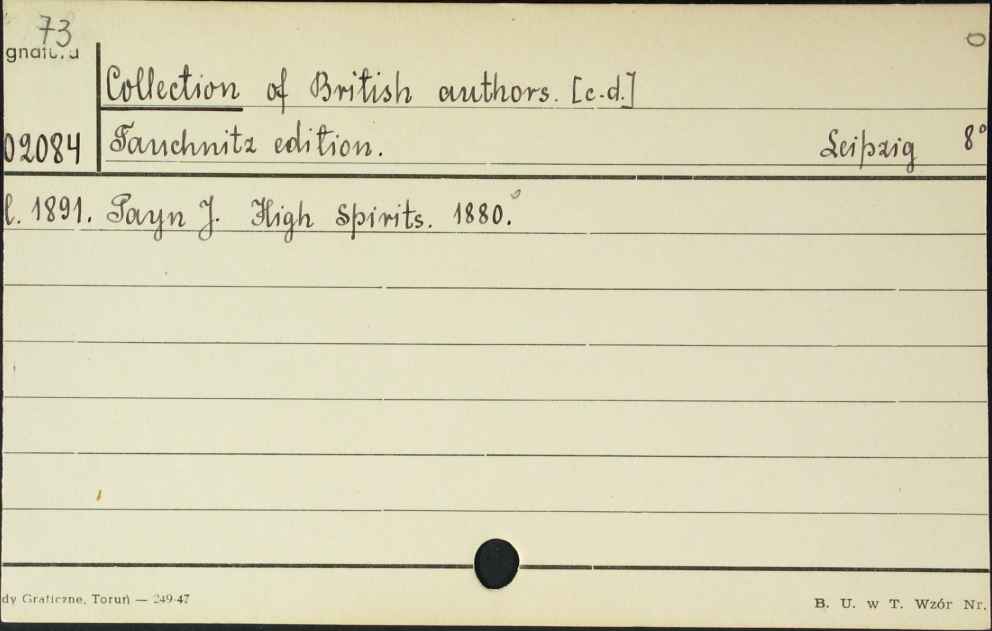 73
gnatura
Collection of British authors. [c.d.]
02084 Tauchnitz edition. Leipzig 8°
l. 1891. Payn J. High Spirits. 1880.
dy Graficzne, Toruń — 249-47
B. U. w T. Wzór Nr.